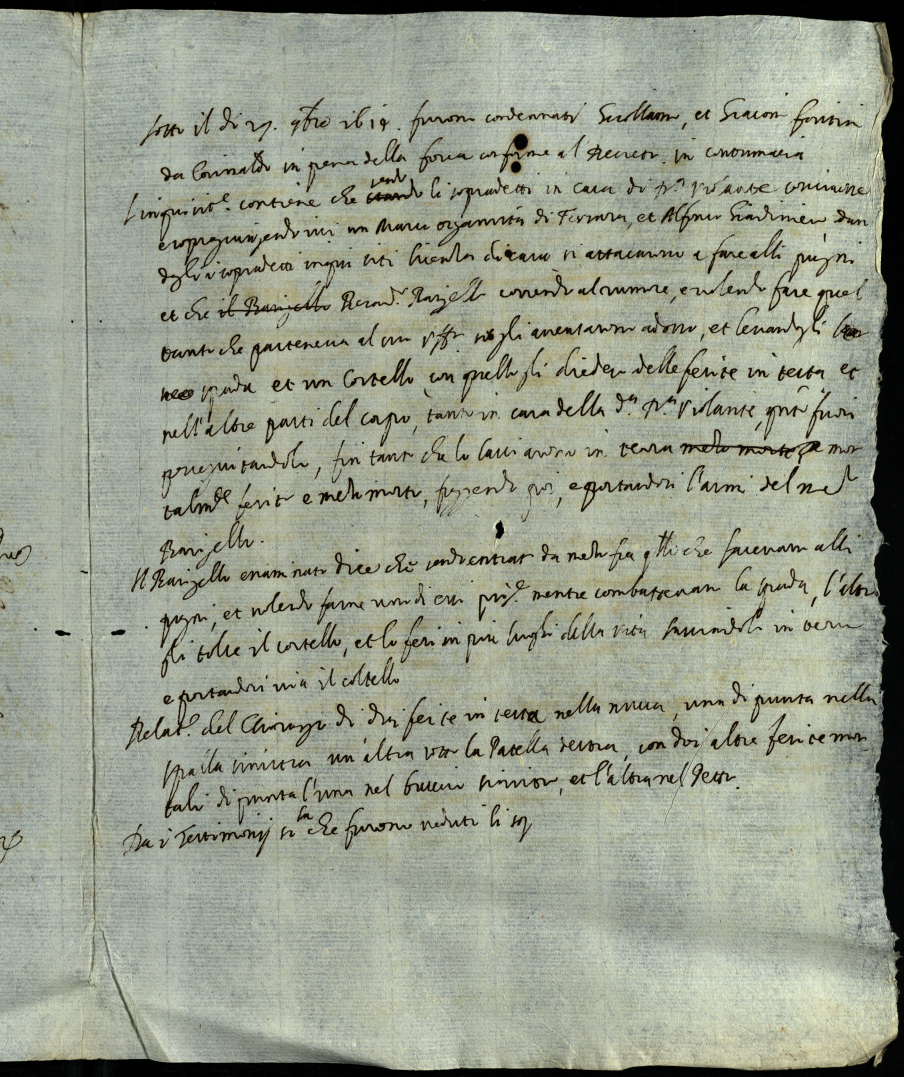 sotto il di 27. 9bre 1619. furono condennati Girollamo, et Giacom fiorini
da Corinaldo in pena della forca conforme al Decreto in contumacia
L'inquisit.e contiene che essendo li sopradetti in casa di m.a Violante
e sopragiungendo ivi un Marco organista di Ferrara, et Alfonso
degli sopradetti inquisiti si attaccarono a fare alli pugni
et che il Barigello Barigello correndo al rumore, e volendo fare quel
tanto che parteneva al suo uff.o se gli aventarono adosso, et levandogli la
spada et un Cortello con quello gli diedero delle ferite in testa et
nell'altre parti del corpo, tanto in casa della d.a m.a Violante, fuori
perseguitandolo, fin tanto che lo lasciarono in terra mezo morto, e mor
talm.te ferito e mezo morto, fuggendo poi, e portandosi l'armi del med.o
Barigello.
Il Barigello esaminato dice che essendo entrato da mezo fra q.lli che facevano alli
pugni, et volendo farne uno di essi prig.e mentre combattevano la spada, l'altro
gli tolse il cortello, et lo ferì in più luoghi della vita lasciandolo in terra
e portandosi via il coltello
Relat.e del Chirurgo di doi ferite in testa nella nuca, una di punta nella
spalla sinistra un'altra sotto la Patella destra, con doi altre ferite mor
tali di punta l'una nel braccio sinistro, et l'altra nel Petto.
Da i Testimonij si ha che furono veduti li sop